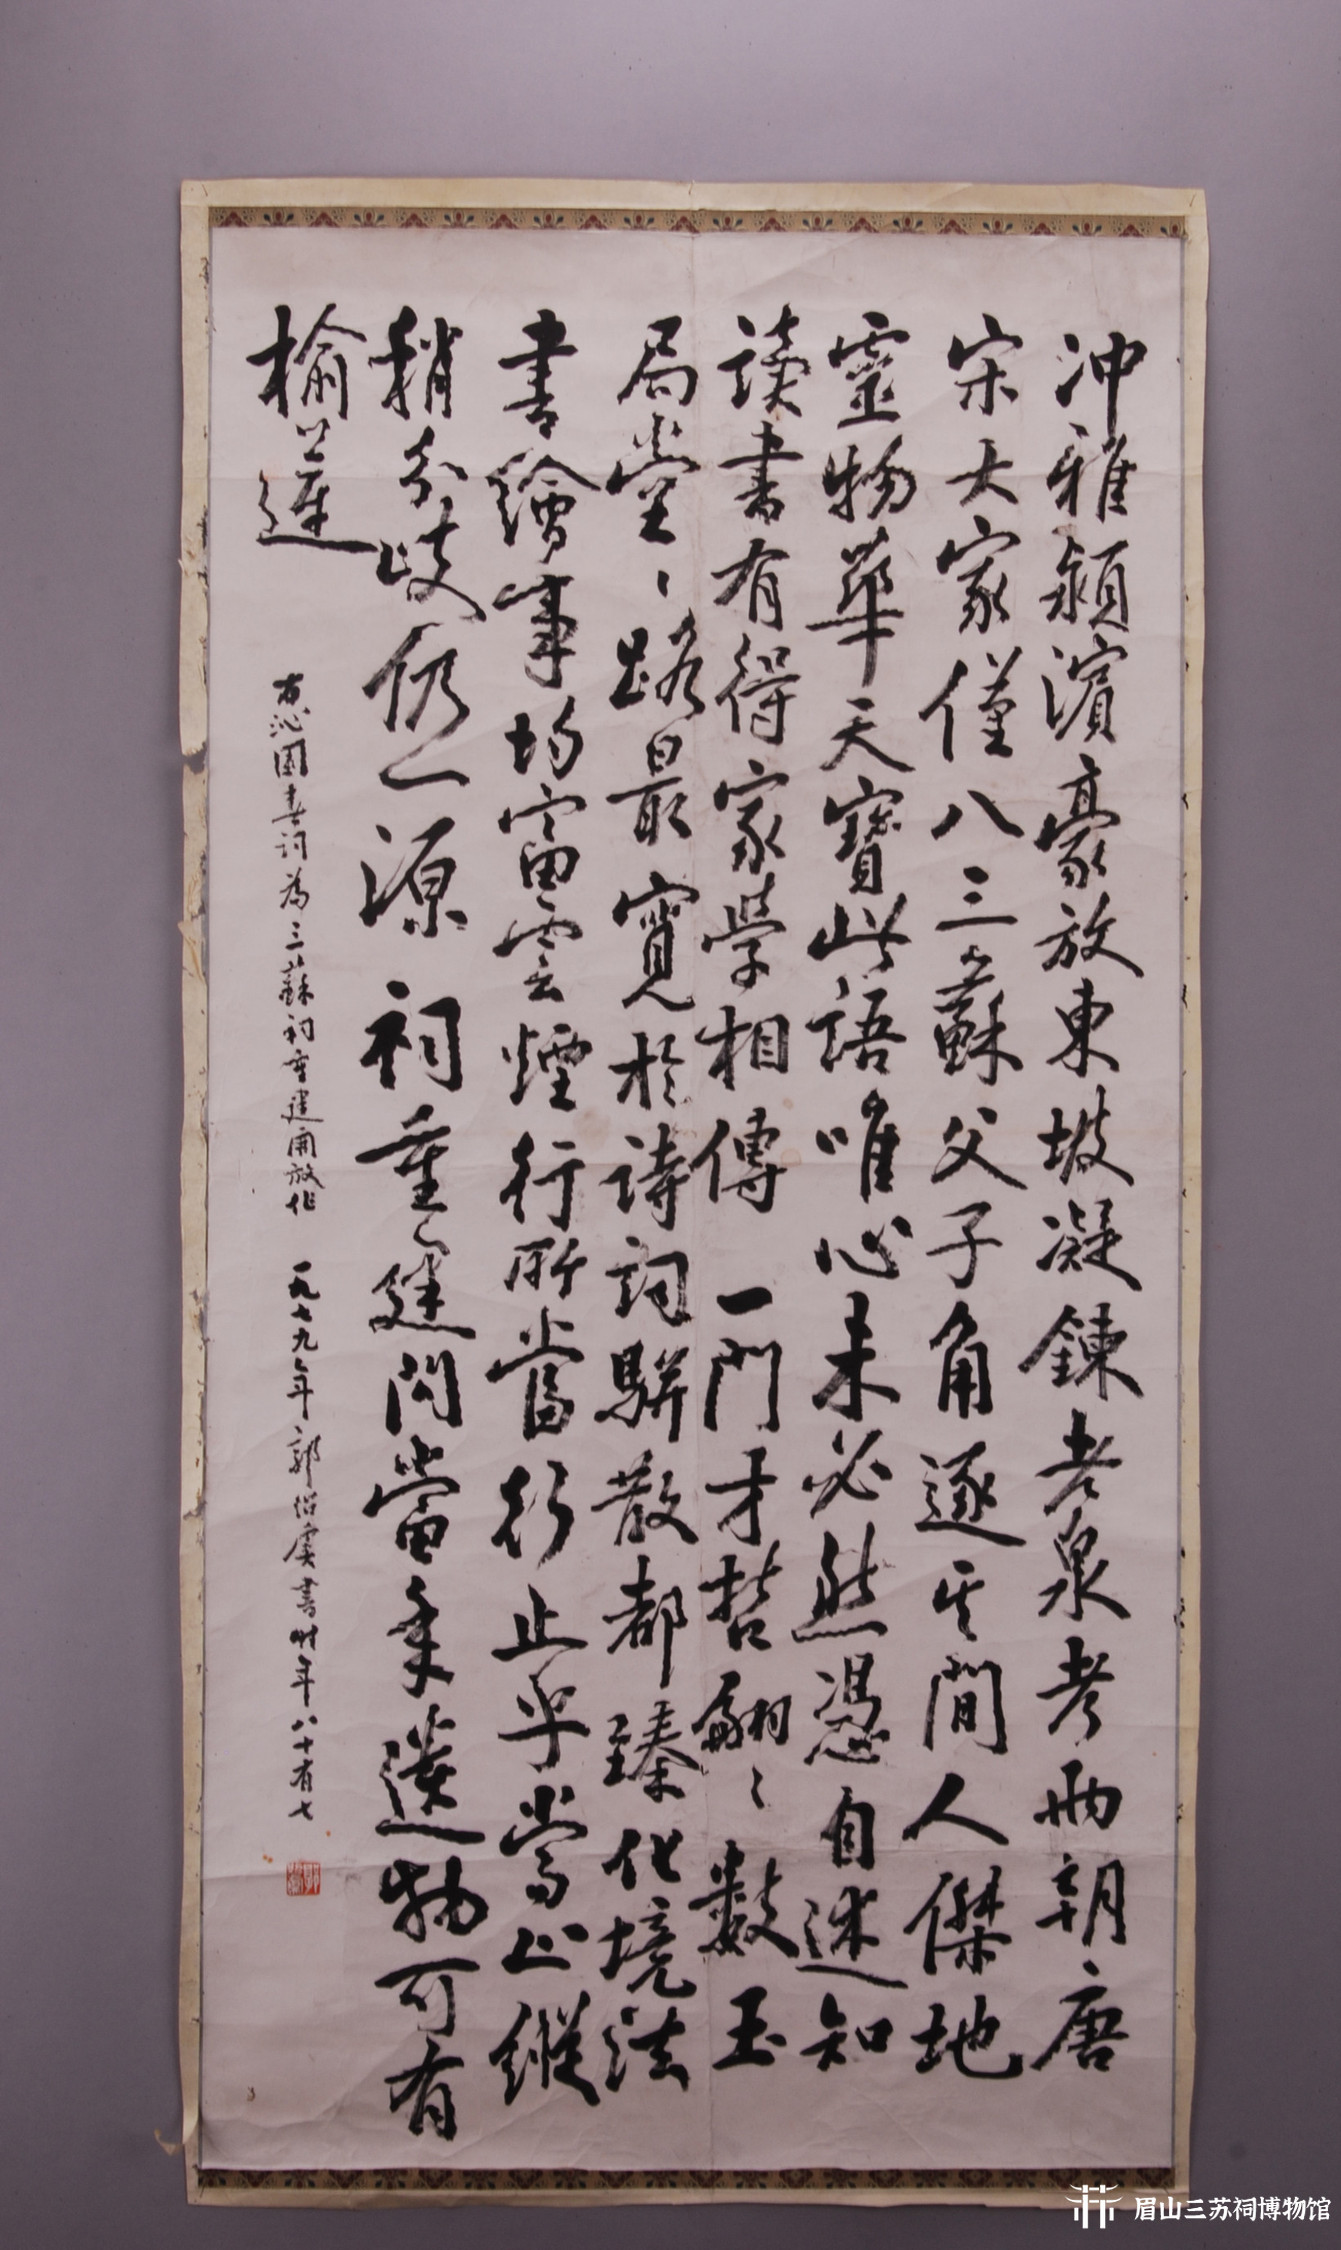 冲雅潁濱豪放東坡凝鍊老泉考兩朝唐
宋大家僅八三蘇父子角逐其間人傑地
靈物華天寶此語唯心未必然憑自述知
讀書有得家學相傳 一門才哲翩〻數玉
局堂〻路最寬於詩詞駢散都臻化境法
書繪事均富雲煙行所當行止乎當止縱
稍分歧仍一源 祠重建問當年遺物可有
榆䇲
右沁園春詞為三蘇祠重建開放作 一九七九年郭紹虞書時年八十有七
眉山三苏祠博物馆